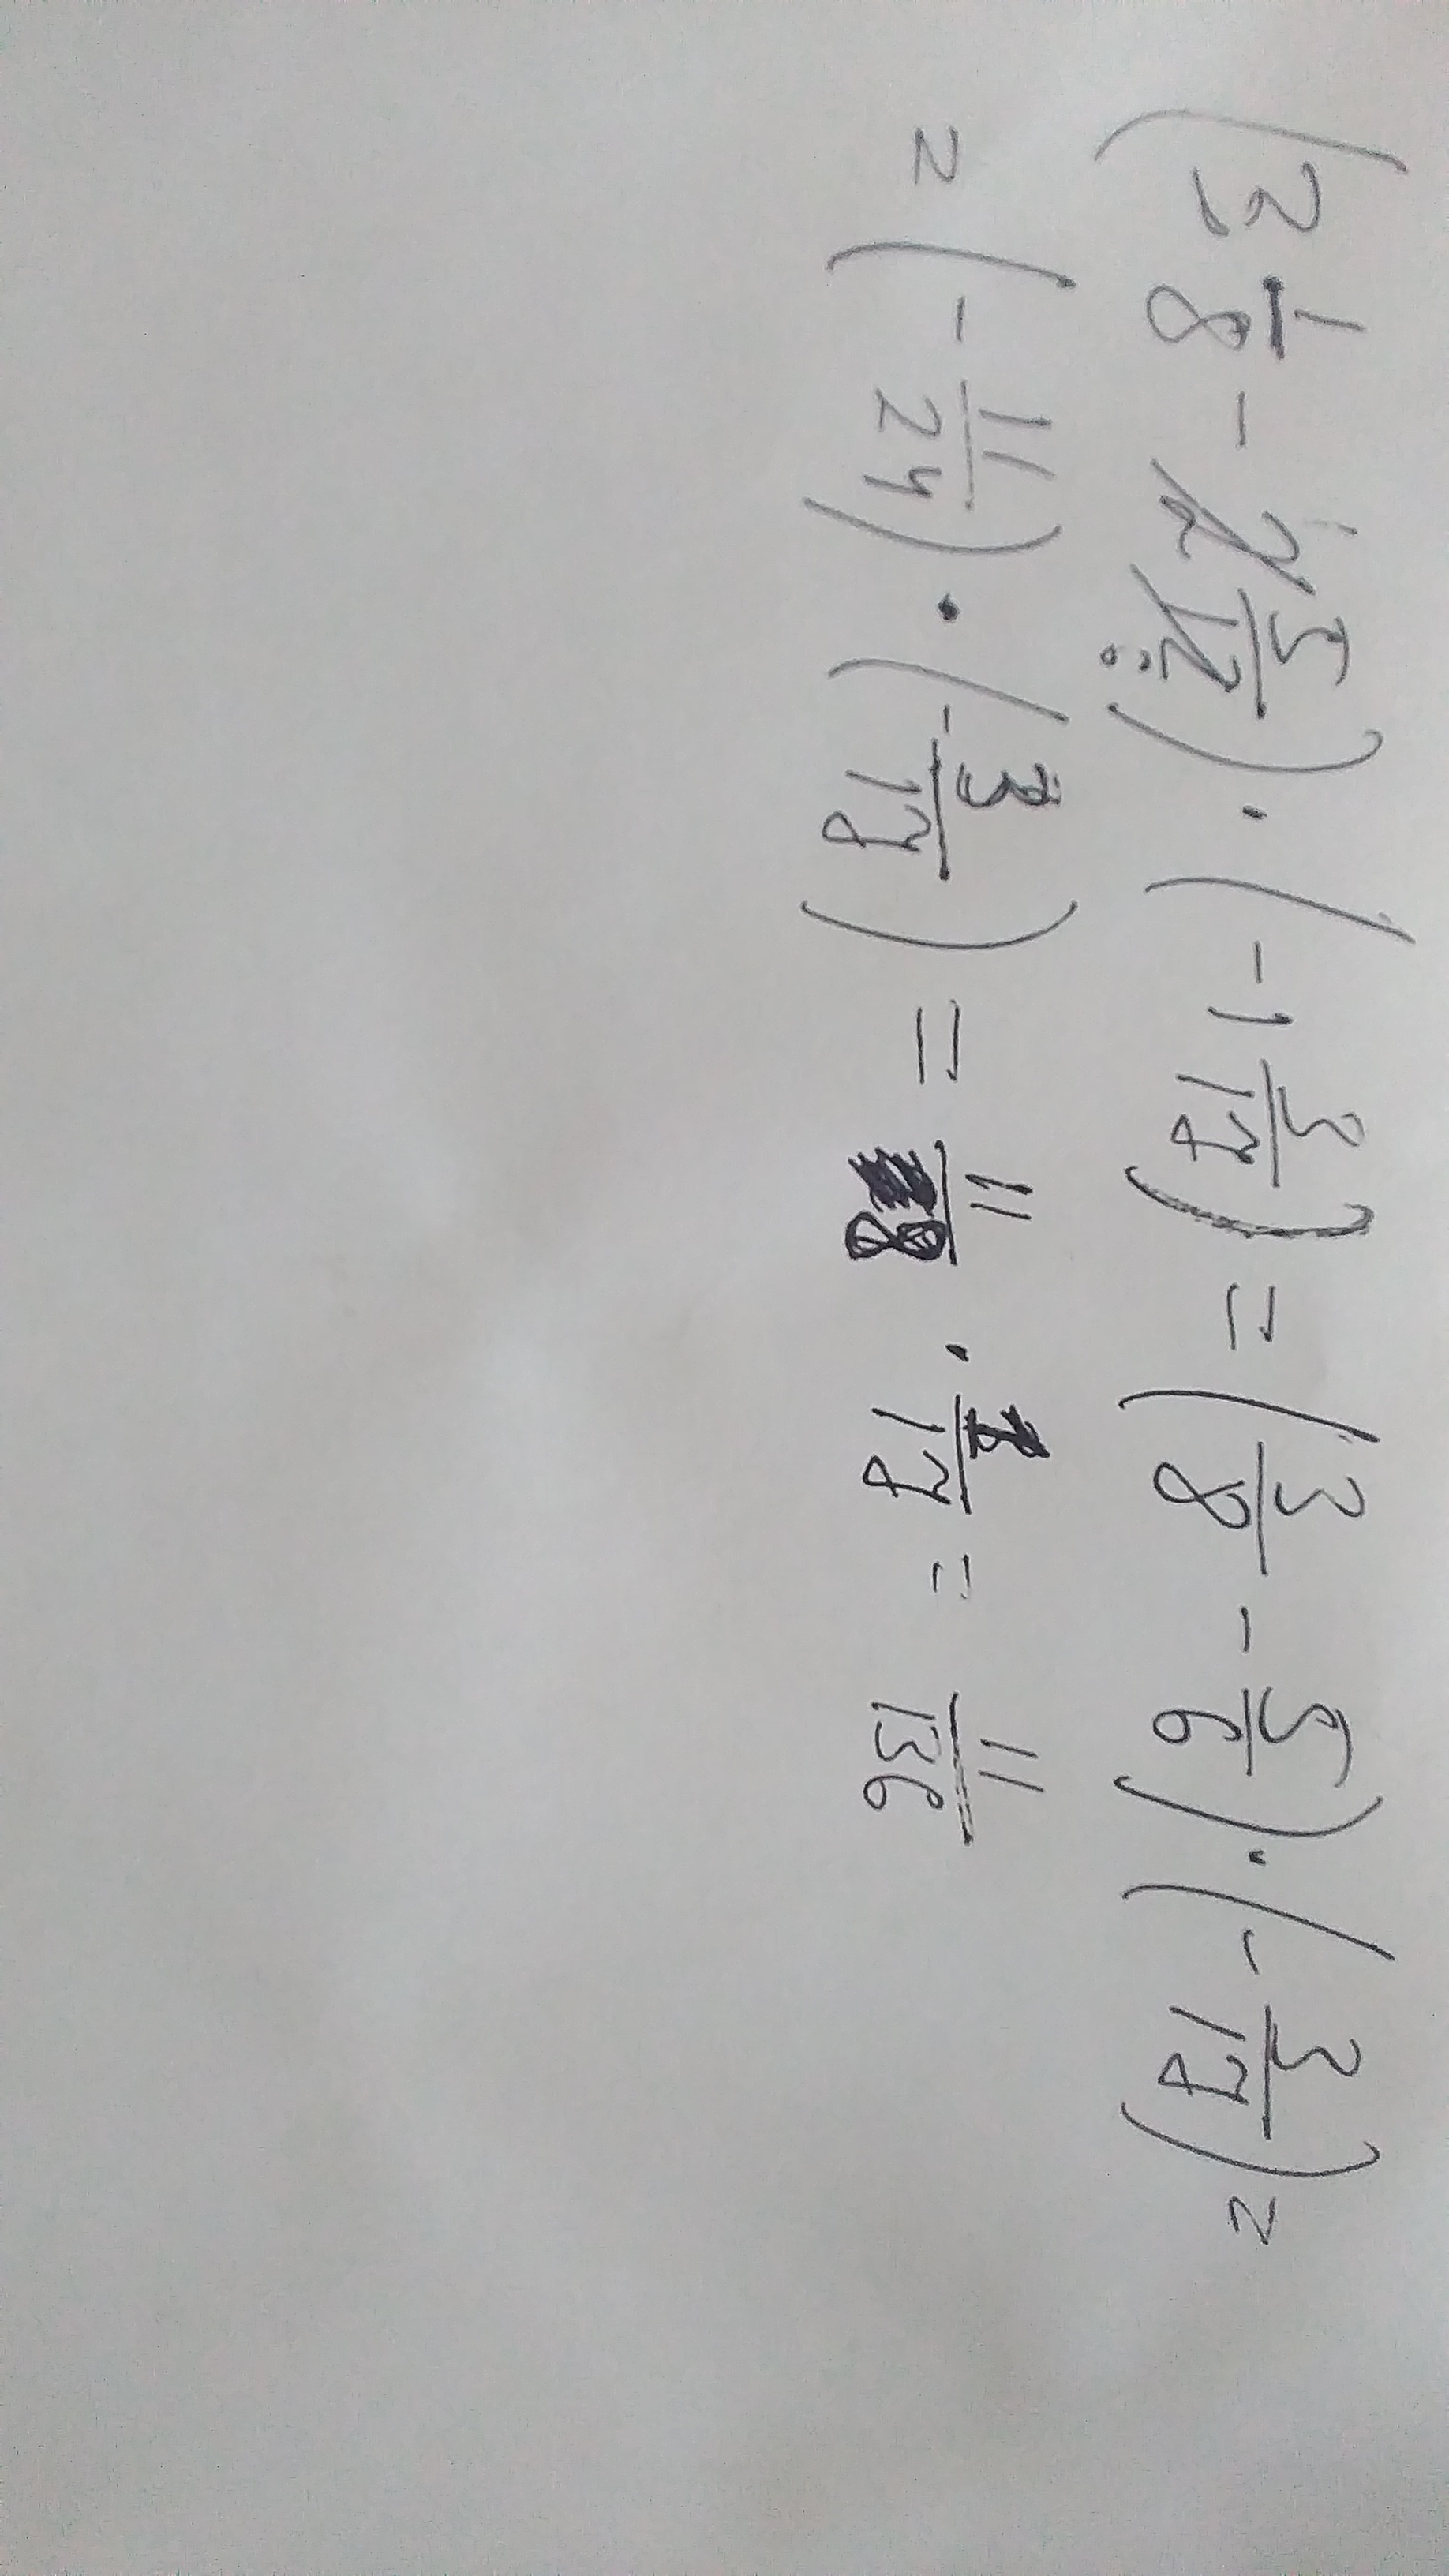 (3 1/8 - 2 5/12) · (-1 3/17) = (3/8 - 5/6) · (-3/17) =
= (-11/24) · (-3/17) = 11/8 · 1/17 = 11/136